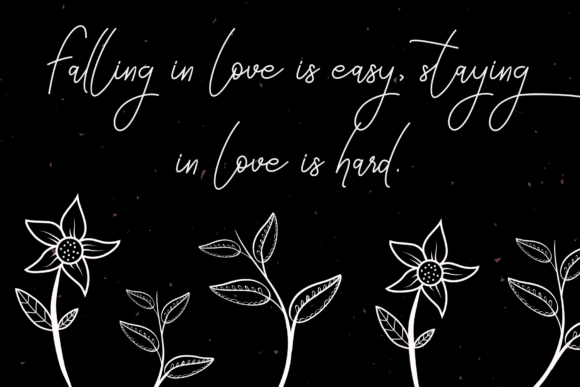 Falling in love is easy, staying
in love is hard.